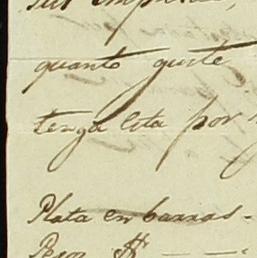 quanto guste
tenga esta por
Plata en barras.
Pesos $ — —